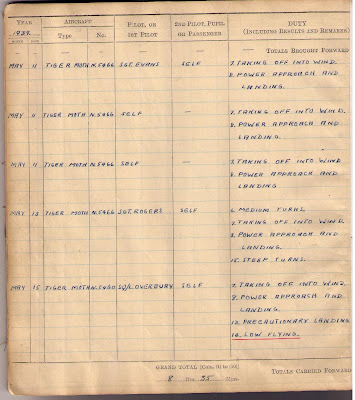 YEAR AIRCRAFT PILOT, OR 2ND PILOT, PUPIL DUTY
1939. 1ST PILOT OR PASSENGER (INCLUDING RESULTS AND REMARKS)
MONTH DATE Type No.
— — — — — TOTALS BROUGHT FORWARD
MAY 11 TIGER MOTH N.5466 SGT. EVANS SELF 7. TAKING OFF INTO WIND.
8. POWER APPROACH AND
LANDING.
MAY 11 TIGER MOTH N.5466 SELF — 7. TAKING OFF INTO WIND.
8. POWER APPROACH AND
LANDING.
MAY 11 TIGER MOTH N.5466 SELF — 7. TAKING OFF INTO WIND
8. POWER APPROACH AND
LANDING
MAY 13 TIGER MOTH SGT. ROGERS SELF 6. MEDIUM TURNS.
7. TAKING OFF INTO WIND.
8. POWER APPROACH AND
LANDING.
15. STEEP TURNS.
MAY 15 TIGER MOTH SELF 7. TAKING OFF INTO WIND.
8. POWER APPROACH AND
LANDING.
13. PRECAUTIONARY LANDING
14. LOW FLYING.
GRAND TOTAL [Cols. (1) to (10)]
8 Hrs. 55 Mins.
TOTALS CARRIED FORWARD